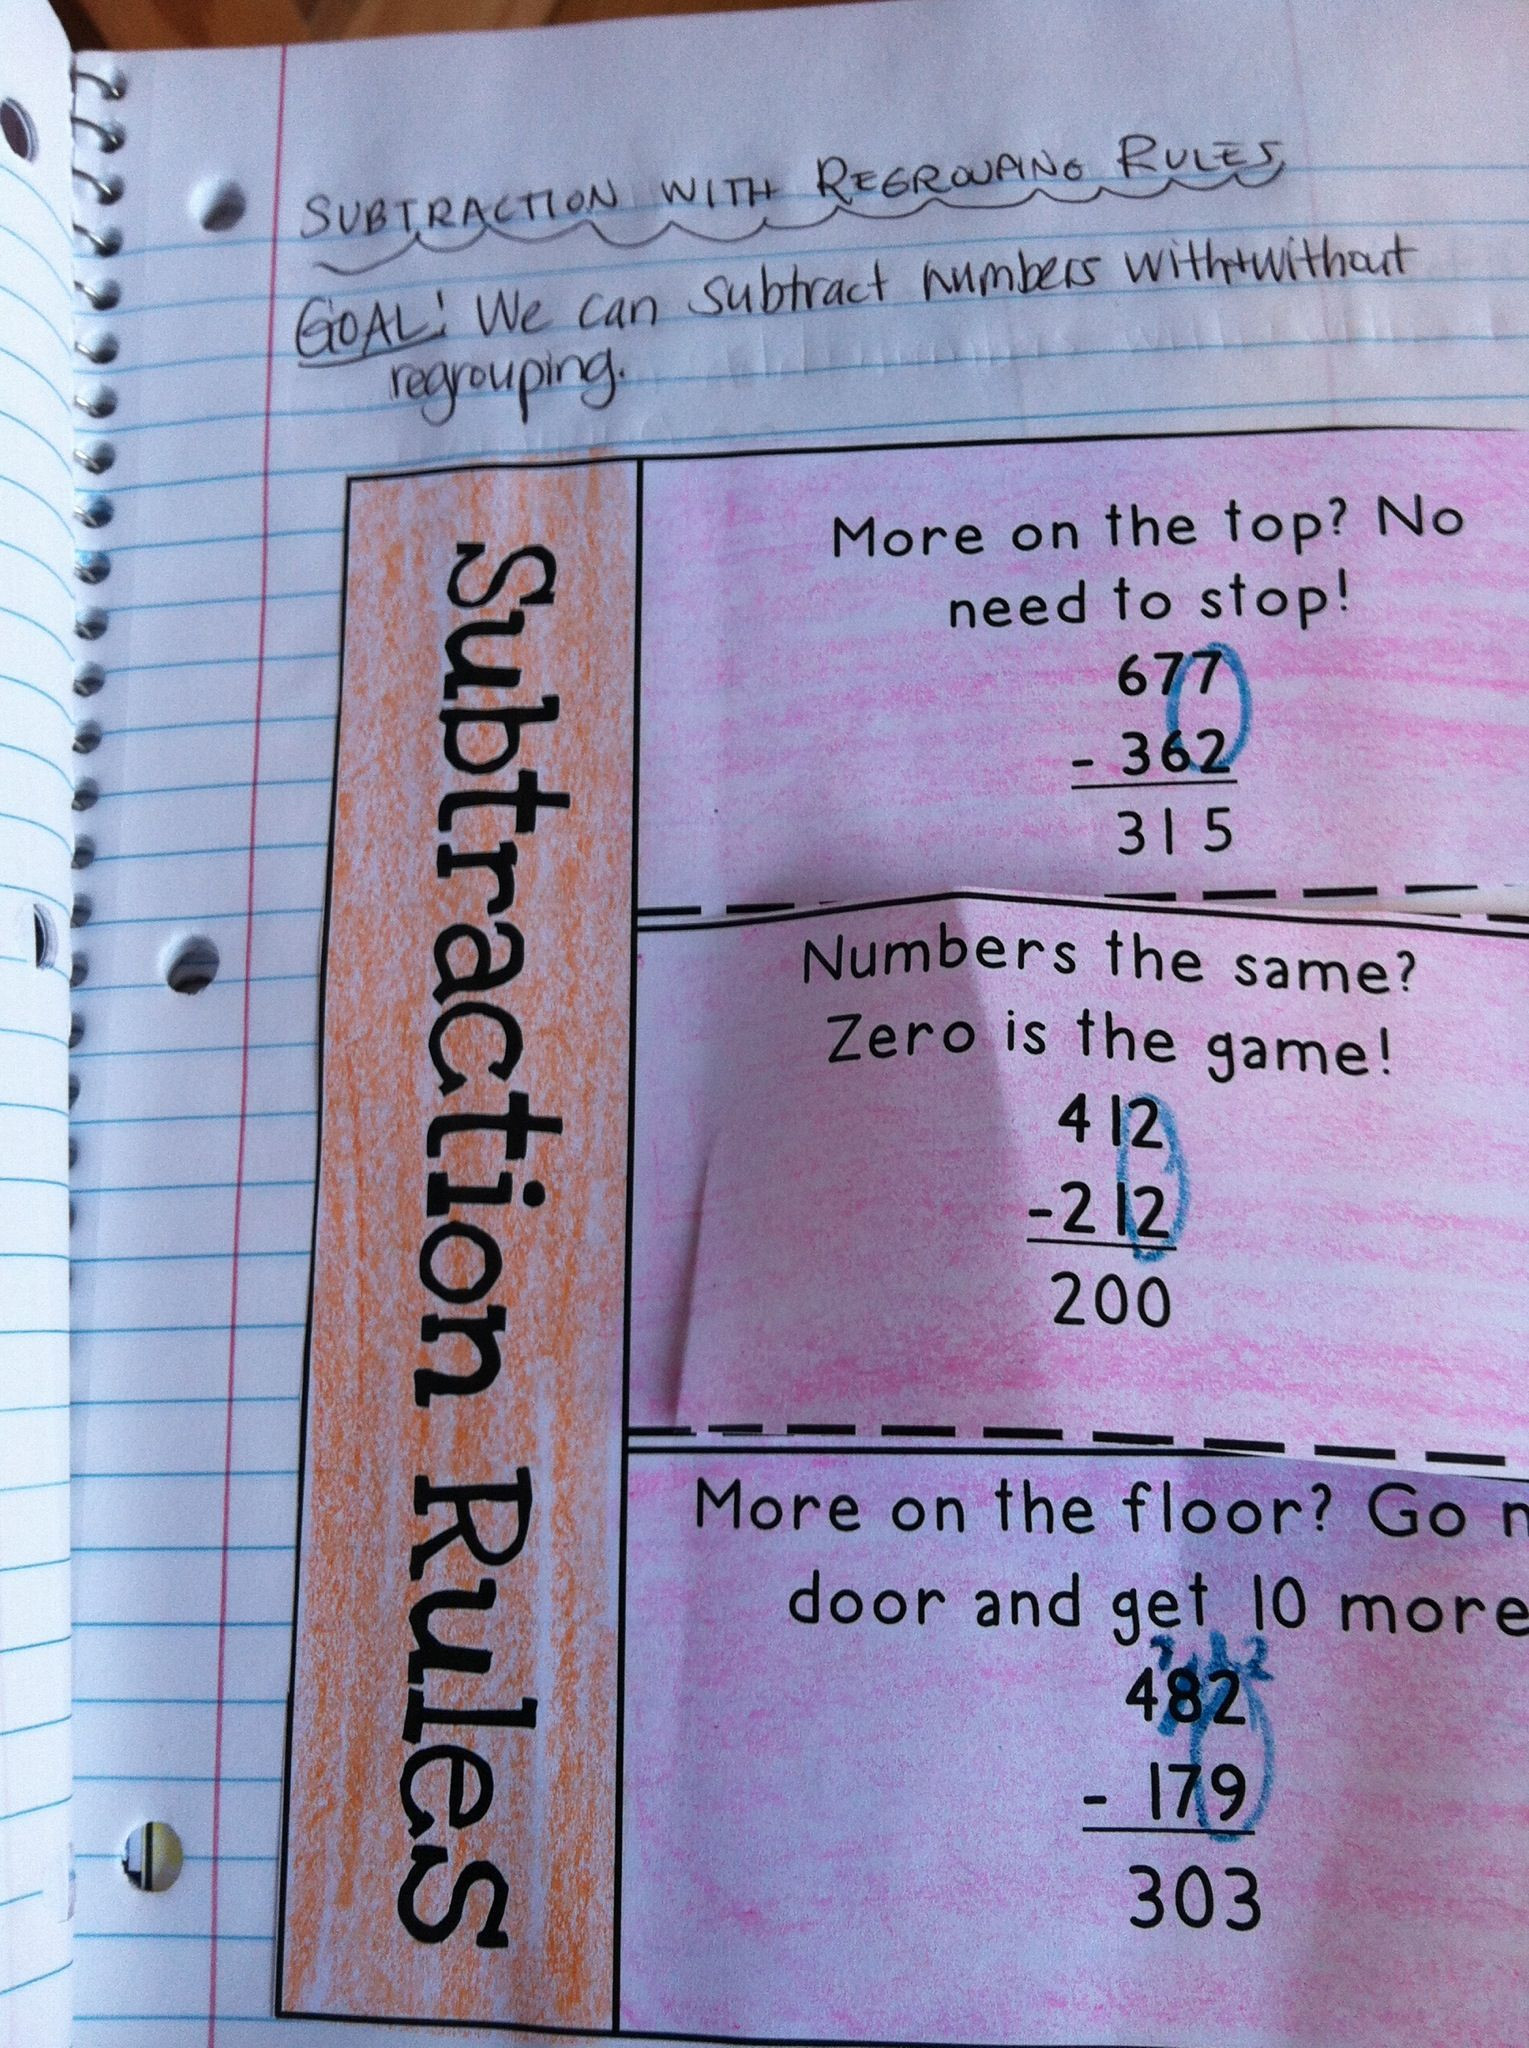 SUBTRACTION WITH REGROUPING RULES
GOAL: We can subtract numbers with+without
regrouping.
Subtraction Rules
More on the top? No
need to stop!
677
- 362
315
Numbers the same?
Zero is the game!
412
-212
200
More on the floor? Go
door and get 10 more
482
- 179
303